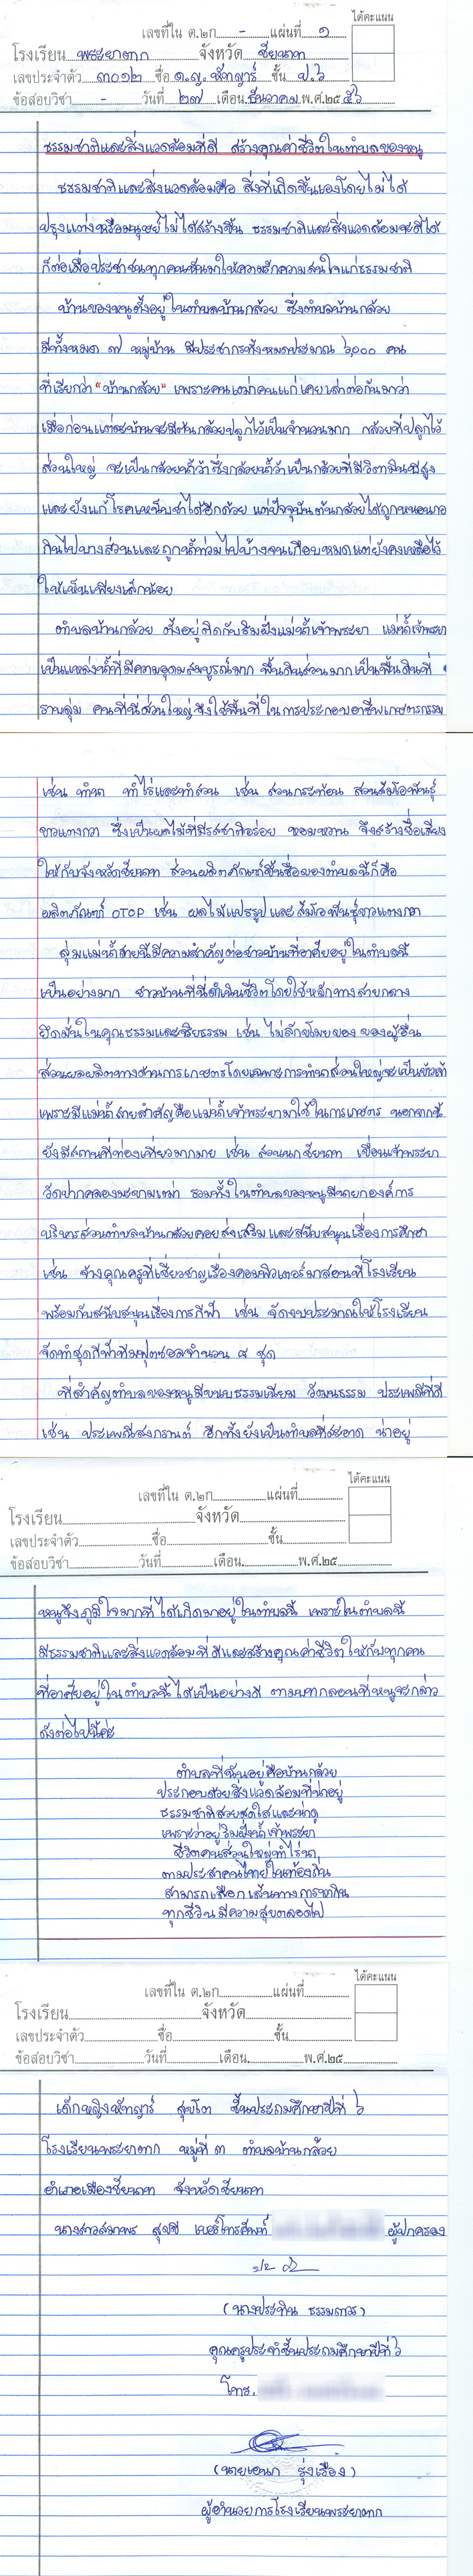 ได้คะแนน
เลขที่ใน ต.๒ก - แผ่นที่ ๑
โรงเรียน พระยาตาก จังหวัด ชัยนาท
เลขประจำตัว ๓๐๑๒ ชื่อ ด.ญ. หัทญาร์ ชั้น ป.๖
ข้อสอบวิชา - วันที่ ๒๗ เดือน ธันวาคม พ.ศ.๒๕๕๖
ธรรมชาติและสิ่งแวดล้อมที่ดี สร้างคุณค่าชีวิตในตำบลของหนู
ธรรมชาติและสิ่งแวดล้อมคือ สิ่งที่เกิดขึ้นเองโดยไม่ได้
ปรุงแต่งหรือมนุษย์ไม่ได้สร้างขึ้น ธรรมชาติและสิ่งแวดล้อมจะดีได้
ก็ต่อเมื่อประชาชนทุกคนหันมาให้ความรักความสนใจแก่ธรรมชาติ
บ้านของหนูตั้งอยู่ในตำบลบ้านกล้วย ซึ่งตำบลบ้านกล้วย
มีทั้งหมด ๗ หมู่บ้าน มีประชากรทั้งหมดประมาณ ๖,๑๐๐ คน
ที่เรียกว่า "บ้านกล้วย" เพราะคนเฒ่าคนแก่เคยเล่าต่อกันมาว่า
เมื่อก่อนแต่ละบ้านจะมีต้นกล้วยปลูกไว้เป็นจำนวนมาก กล้วยที่ปลูกไว้
ส่วนใหญ่ จะเป็นกล้วยน้ำว้าซึ่งกล้วยน้ำว้าเป็นกล้วยที่มีวิตามินบีสูง
และยังแก้โรคเหน็บชาได้อีกด้วย แต่ปัจจุบันต้นกล้วยได้ถูกหนอนกอ
กินไปบางส่วนและถูกน้ำท่วมไปบ้างจนเกือบหมดแต่ยังคงเหลือไว้
ให้เห็นเพียงเล็กน้อย
ตำบลบ้านกล้วย ตั้งอยู่ติดกับริมฝั่งแม่น้ำเจ้าพระยา แม่น้ำเจ้าพระยา
เป็นแหล่งน้ำที่มีความอุดมสมบูรณ์มาก พื้นดินส่วนมากเป็นพื้นดินที่
ราบลุ่ม คนที่นี่ส่วนใหญ่จึงใช้พื้นที่ในการประกอบอาชีพเกษตรกรรม
เช่น ทำนา ทำไร่และทำสวน เช่น สวนกระท้อน สวนส้มโอพันธุ์
ขาวแตงกวา ซึ่งเป็นผลไม้ที่มีรสชาติอร่อย หอมหวาน จึงสร้างชื่อเสียง
ให้กับจังหวัดชัยนาท ส่วนผลิตภัณฑ์ขึ้นชื่อของตำบลนี้ก็คือ
ผลิตภัณฑ์ OTOP เช่น ผลไม้แปรรูปและส้มโอพันธุ์ขาวแตงกวา
ลุ่มแม่น้ำสายนี้มีความสำคัญต่อชาวบ้านที่อาศัยอยู่ในตำบลนี้
เป็นอย่างมาก ชาวบ้านที่นี่ดำเนินชีวิตโดยใช้หลักทางสายกลาง
ยึดมั่นในคุณธรรมและจริยธรรม เช่น ไม่ลักขโมยของ ของผู้อื่น
ส่วนผลผลิตทางด้านการเกษตรโดยเฉพาะการทำนาส่วนใหญ่จะเป็นข้าวเจ้า
เพราะมีแม่น้ำสายสำคัญคือแม่น้ำเจ้าพระยามาใช้ในการเกษตร นอกจากนี้
ยังมีสถานที่ท่องเที่ยวมากมาย เช่น สวนนกชัยนาท เขื่อนเจ้าพระยา
วัดปากคลองมะขามเฒ่า รวมทั้งในตำบลของหนูมีนายกองค์การ
บริหารส่วนตำบลบ้านกล้วยคอยส่งเสริมและสนับสนุนเรื่องการศึกษา
เช่น จ้างคุณครูที่เชี่ยวชาญเรื่องคอมพิวเตอร์มาสอนที่โรงเรียน
พร้อมกับสนับสนุนเรื่องการกีฬา เช่น จัดงบประมาณให้โรงเรียน
จัดทำชุดกีฬาทีมฟุตซอลจำนวน ๘ ชุด
ที่สำคัญตำบลของหนูมีขนบธรรมเนียม วัฒนธรรม ประเพณีที่ดี
เช่น ประเพณีสงกรานต์ อีกทั้งยังเป็นตำบลที่สะอาด น่าอยู่
ได้คะแนน
เลขที่ใน ต.๒ก แผ่นที่
โรงเรียน จังหวัด
เลขประจำตัว ชื่อ ชั้น
ข้อสอบวิชา วันที่ เดือน พ.ศ.๒๕
หนูจึงภูมิใจมากที่ได้เกิดมาอยู่ในตำบลนี้ เพราะในตำบลนี้
มีธรรมชาติและสิ่งแวดล้อมที่ดีและสร้างคุณค่าชีวิตให้กับทุกคน
ที่อาศัยอยู่ในตำบลนี้ได้เป็นอย่างดี ตามบทกลอนที่หนูจะกล่าว
ดังต่อไปนี้ค่ะ
ตำบลที่ฉันอยู่คือบ้านกล้วย
ประกอบด้วยสิ่งแวดล้อมที่น่าอยู่
ธรรมชาติสวยสดใสและน่าดู
เพราะว่าอยู่ริมฝั่งน้ำเจ้าพระยา
ชีวิตคนส่วนใหญ่ทำไร่นา
ตามประสาคนไทยในท้องถิ่น
สามารถเลือกเส้นทางการหากิน
ทุกชีวินมีความสุขตลอดไป
ได้คะแนน
เลขที่ใน ต.๒ก แผ่นที่
โรงเรียน จังหวัด
เลขประจำตัว ชื่อ ชั้น
ข้อสอบวิชา วันที่ เดือน พ.ศ.๒๕
เด็กหญิงหัทญาร์ สุขโต ชั้นประถมศึกษาปีที่ ๖
โรงเรียนพระยาตาก หมู่ที่ ๓ ตำบลบ้านกล้วย
อำเภอเมืองชัยนาท จังหวัดชัยนาท
นางสาวสมพร เบอร์โทรศัพท์ ผู้ปกครอง
(นางประทิน ธรรมถาวร)
คุณครูประจำชั้นประถมศึกษาปีที่ ๖
โทร.
(นายเอนก รุ่งเรือง)
ผู้อำนวยการโรงเรียนพระยาตาก